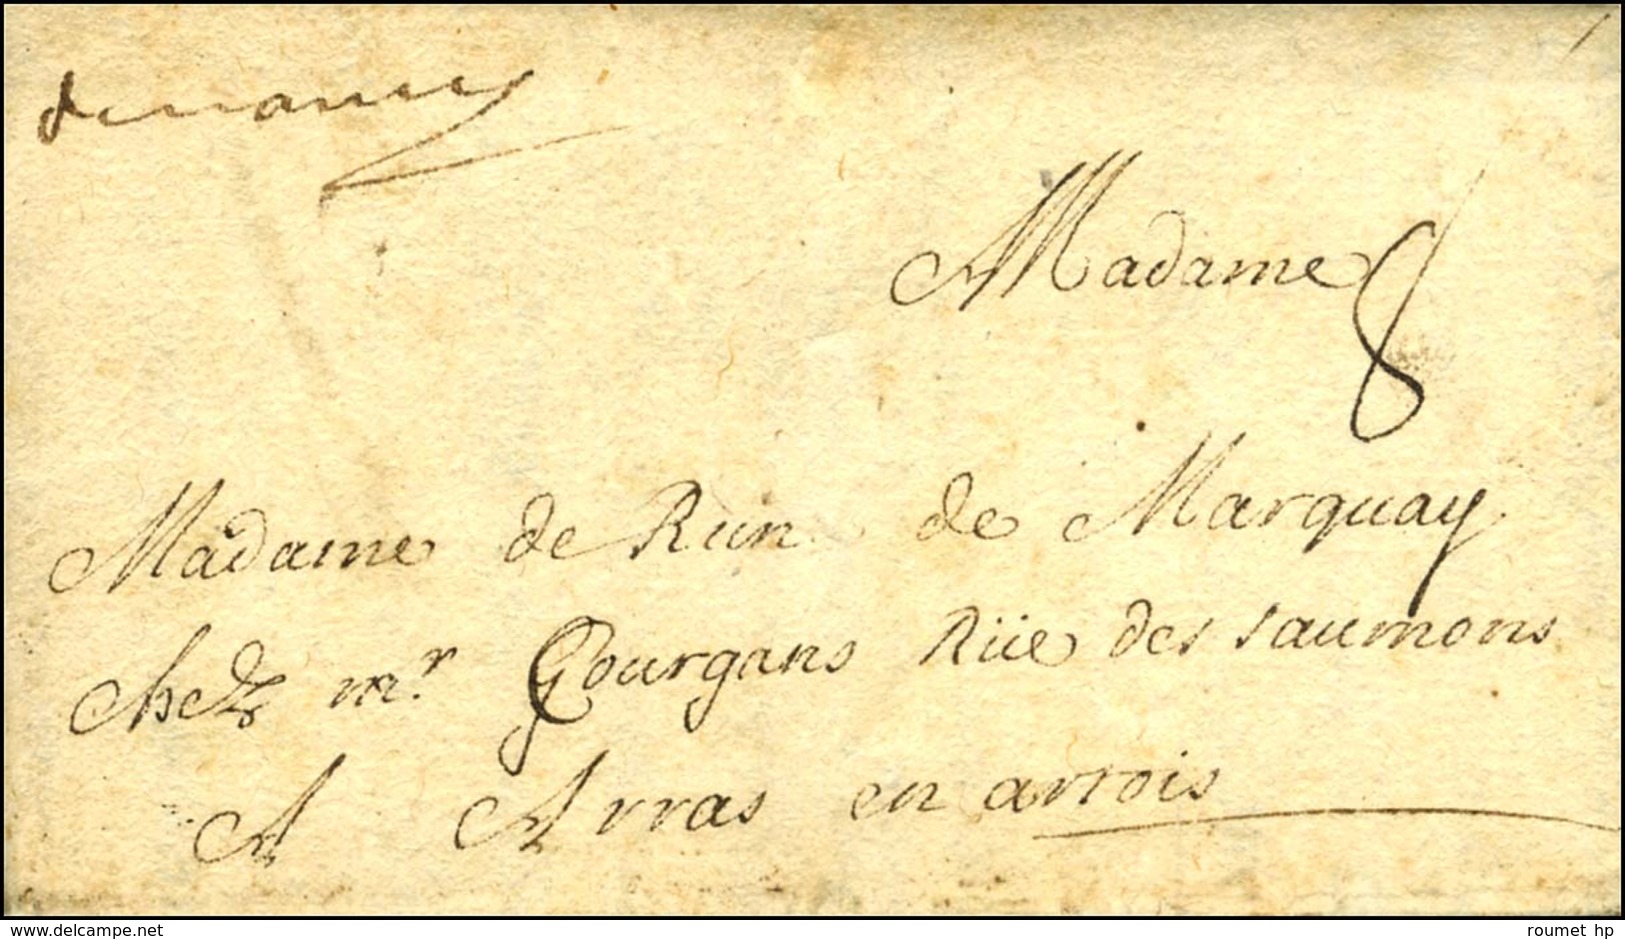 de namur
Madame
8
Madame de Run de Marquay
chez mr. Gourgans Rüe des saumons
A Arras en artois
delcampe.net
roumet hp